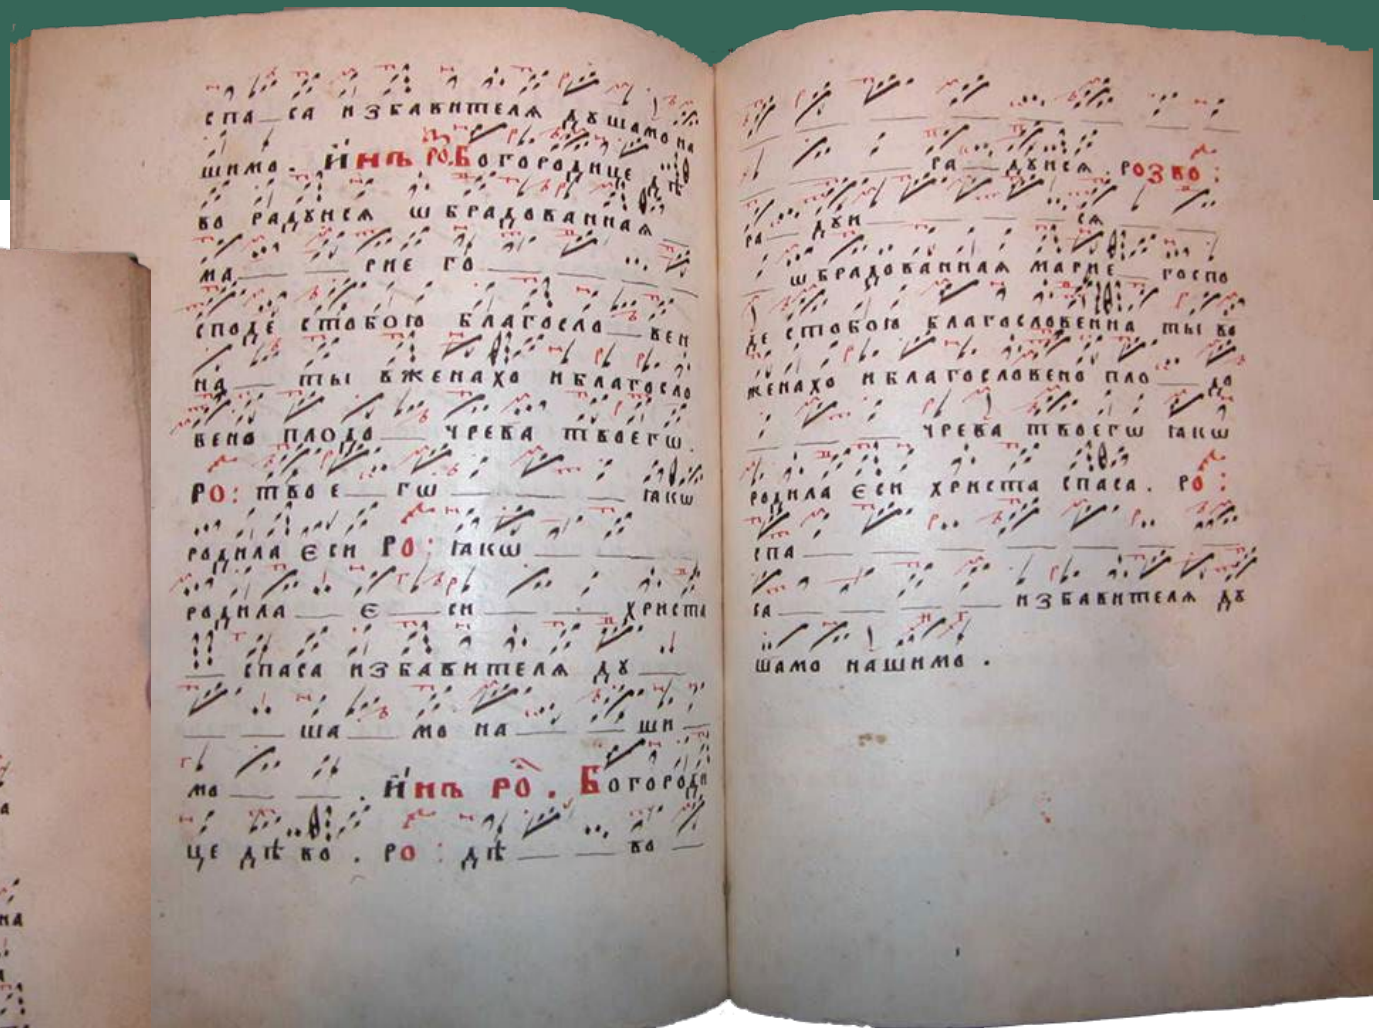 спа са избавителя душамо на
шимо . Инъ РО. Богородице дѣ
во радуися ѡбрадованная
ма рие го
споде стобою благосло вен
на ты вженахо иблагосло
вено плодо чрева твоегѡ .
РО : твое гѡ іакѡ
родила єси РО : іакѡ
родила є си христа
спаса избавителя ду
ша мо на ши
мо . Инъ РО . Богороди
це дѣво . РО : дѣ во
ра дуися . розво :
ра дуи ся
ѡбрадованная марие госпо
де стобою благословенна ты во
женахо иблагословено пло до
чрева твоегѡ іакѡ
родила єси христа спаса . РО :
спа
са избавителя ду
шамо нашимо .